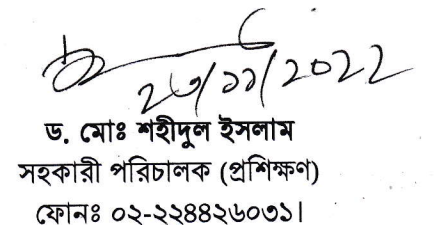 ২৩/১১/2022
ড. মোঃ শহীদুল ইসলাম
সহকারী পরিচালক (প্রশিক্ষণ)
ফোনঃ ০২-২২৪৪২৬০৩১।